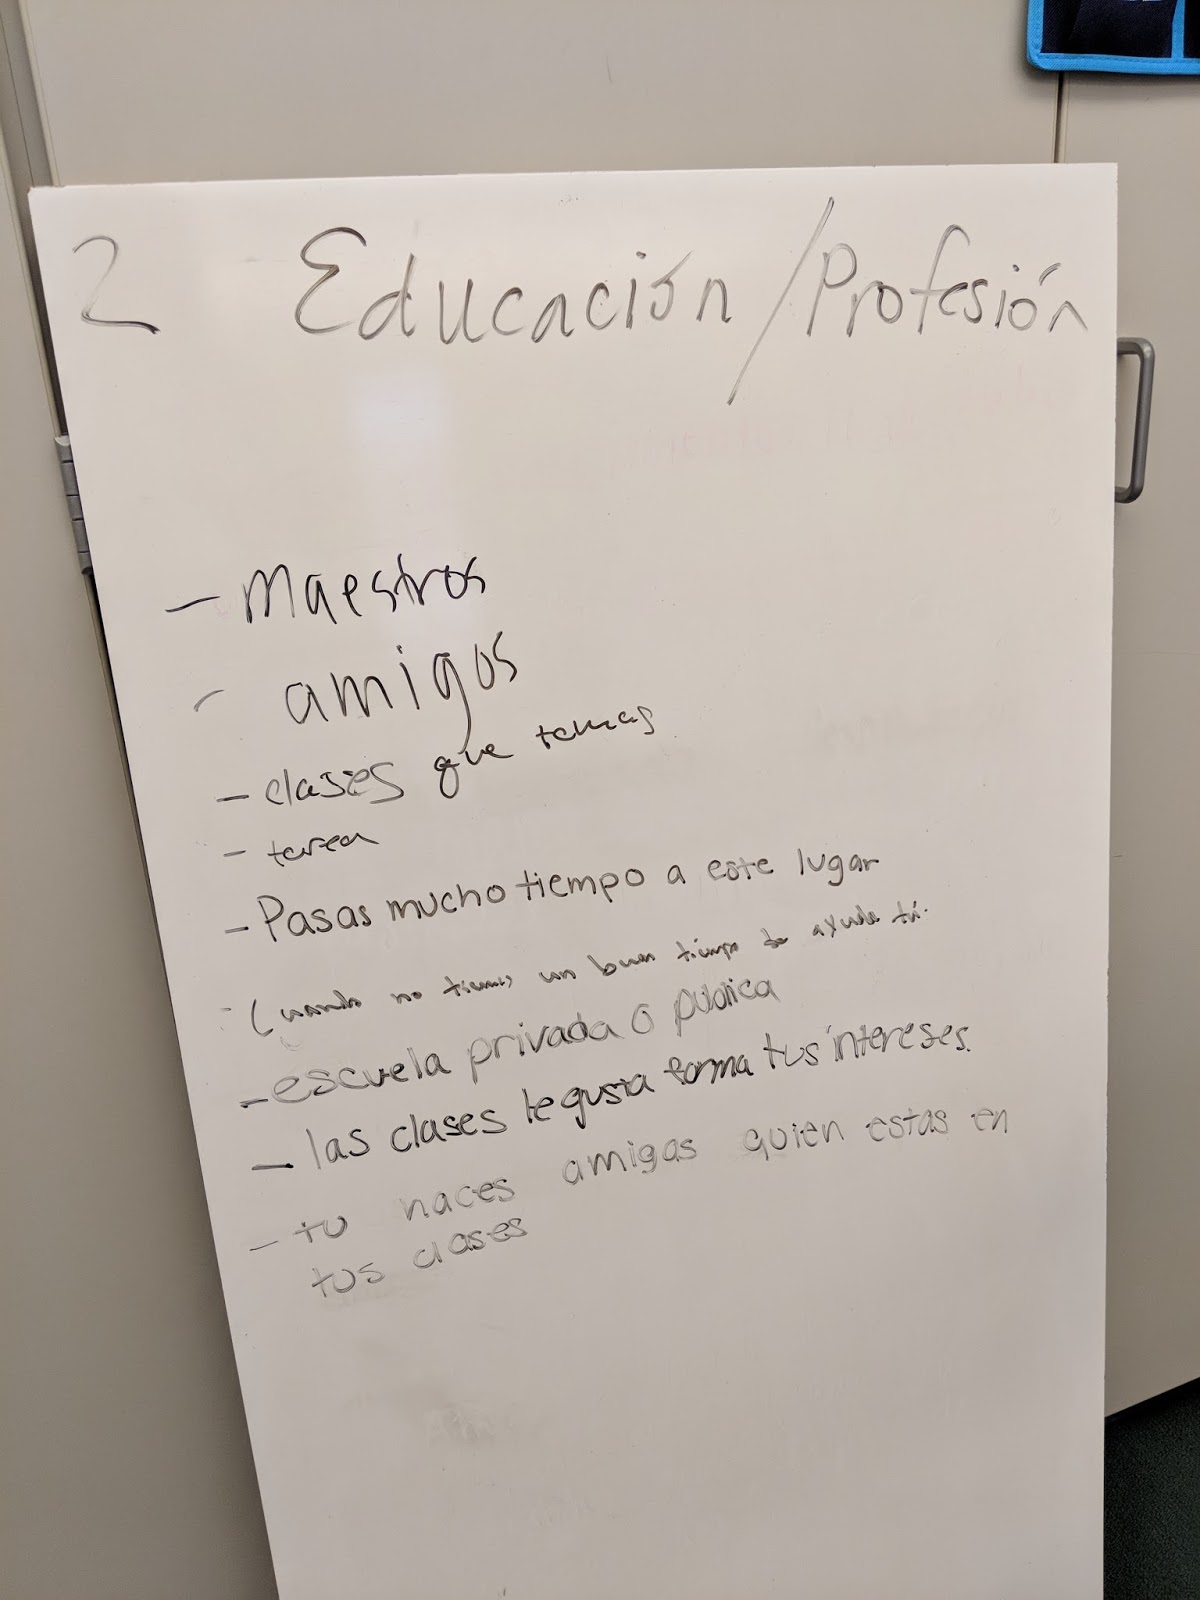 2 Educación/Profesión
- Maestros
- amigos
- clases que temas
- tarea
- Pasas mucho tiempo a este lugar
- Cuando no tienes un buen tiempo te ayuda tú.
- escuela privada o pública
- las clases te gusta forma tus intereses.
- tu haces amigas quien estas en
tus clases